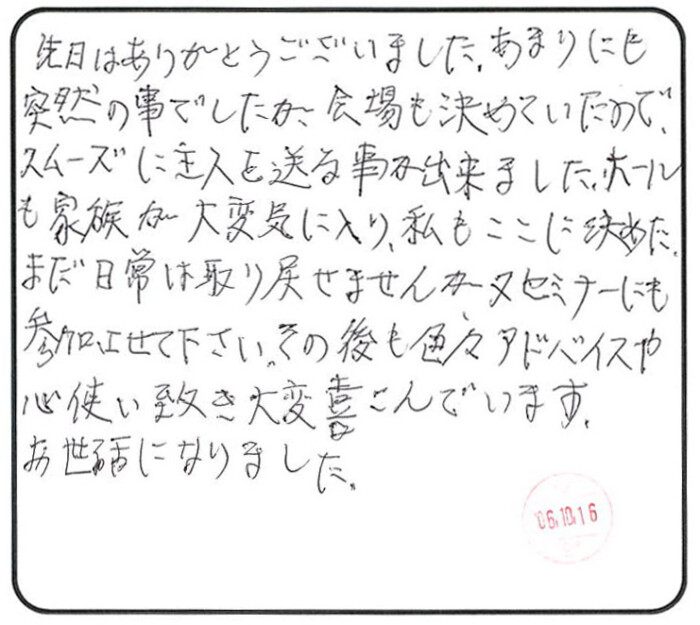 先日はありがとうございました。あまりにも
突然の事でしたが、会場も決めていたので、
スムーズに主人を送る事が出来ました。ホール
も家族が大変気に入り、私もここに決めた。
まだ日常は取り戻せませんが、又セミナーにも
参加させて下さい。その後も色々アドバイスや
心使い致き大変喜こんでいます。
お世話になりました。
'06.10.16